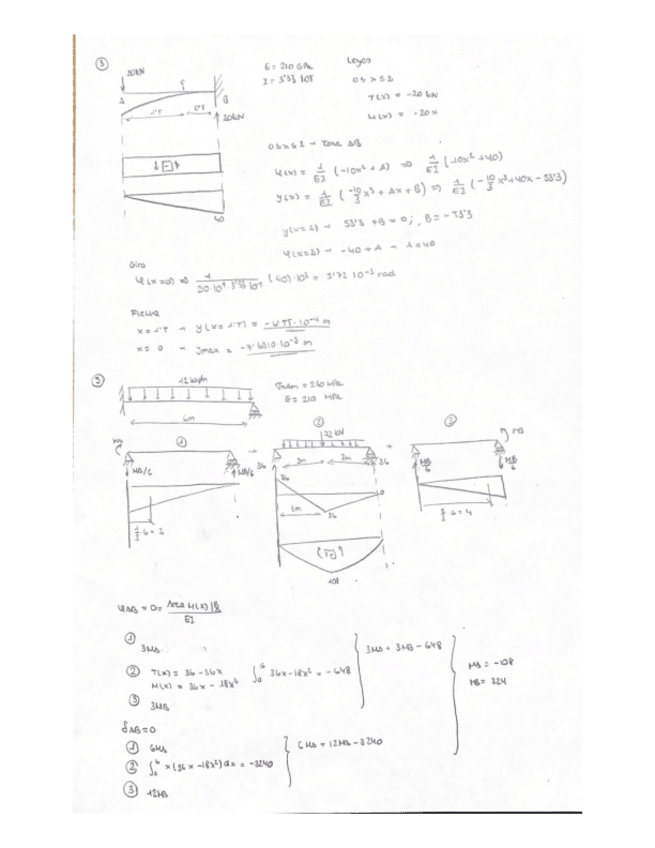 ③
20kN
E = 210 GPa
Leyes
0 ≤ x ≤ 2
T(x) = -20 kN
M(x) = -20x
A
B
20kN
40
0 ≤ x ≤ 2 → Tramo AB
φ(x) = 1/EI (-10x² + A) ⇒ 1/EI (-10x² + 40)
y(x) = 1/EI (-10/3 x³ + Ax + B) ⇒ 1/EI (-10/3 x³ + 40x - 53'3)
y(x=2) → 53'3 + B = 0; B = -53'3
φ(x=2) → -40 + A → A = 40
Giro
φ(x=0) ⇒
(40)·10³ = 5'72·10⁻³ rad
Flecha
x = 1'5 → y(x = 1'5) =
x = 0 → ymax =
③
12 kN/m
σadm = 260 MPa
E = 210 MPa
6m
①
②
③
72 kN
MA
MB
MA/6
MA/6
36
3m
3m
36
MB/6
MB/6
36
3m
36
108
1/3·6 = 2
2/3·6 = 4
φAB = 0 = Area M(x)|B / EI
①
3MA
② T(x) = 36 - 36x
M(x) = 36x - 18x²
∫₀⁶ 36x - 18x² = -648
③ 3MB
3MA + 3MB - 648
MA = -108
MB = 324
δAB = 0
① 6MA
② ∫₀⁶ x(36x - 18x²) dx = -3240
③ 12MB
6MA + 12MB - 3240